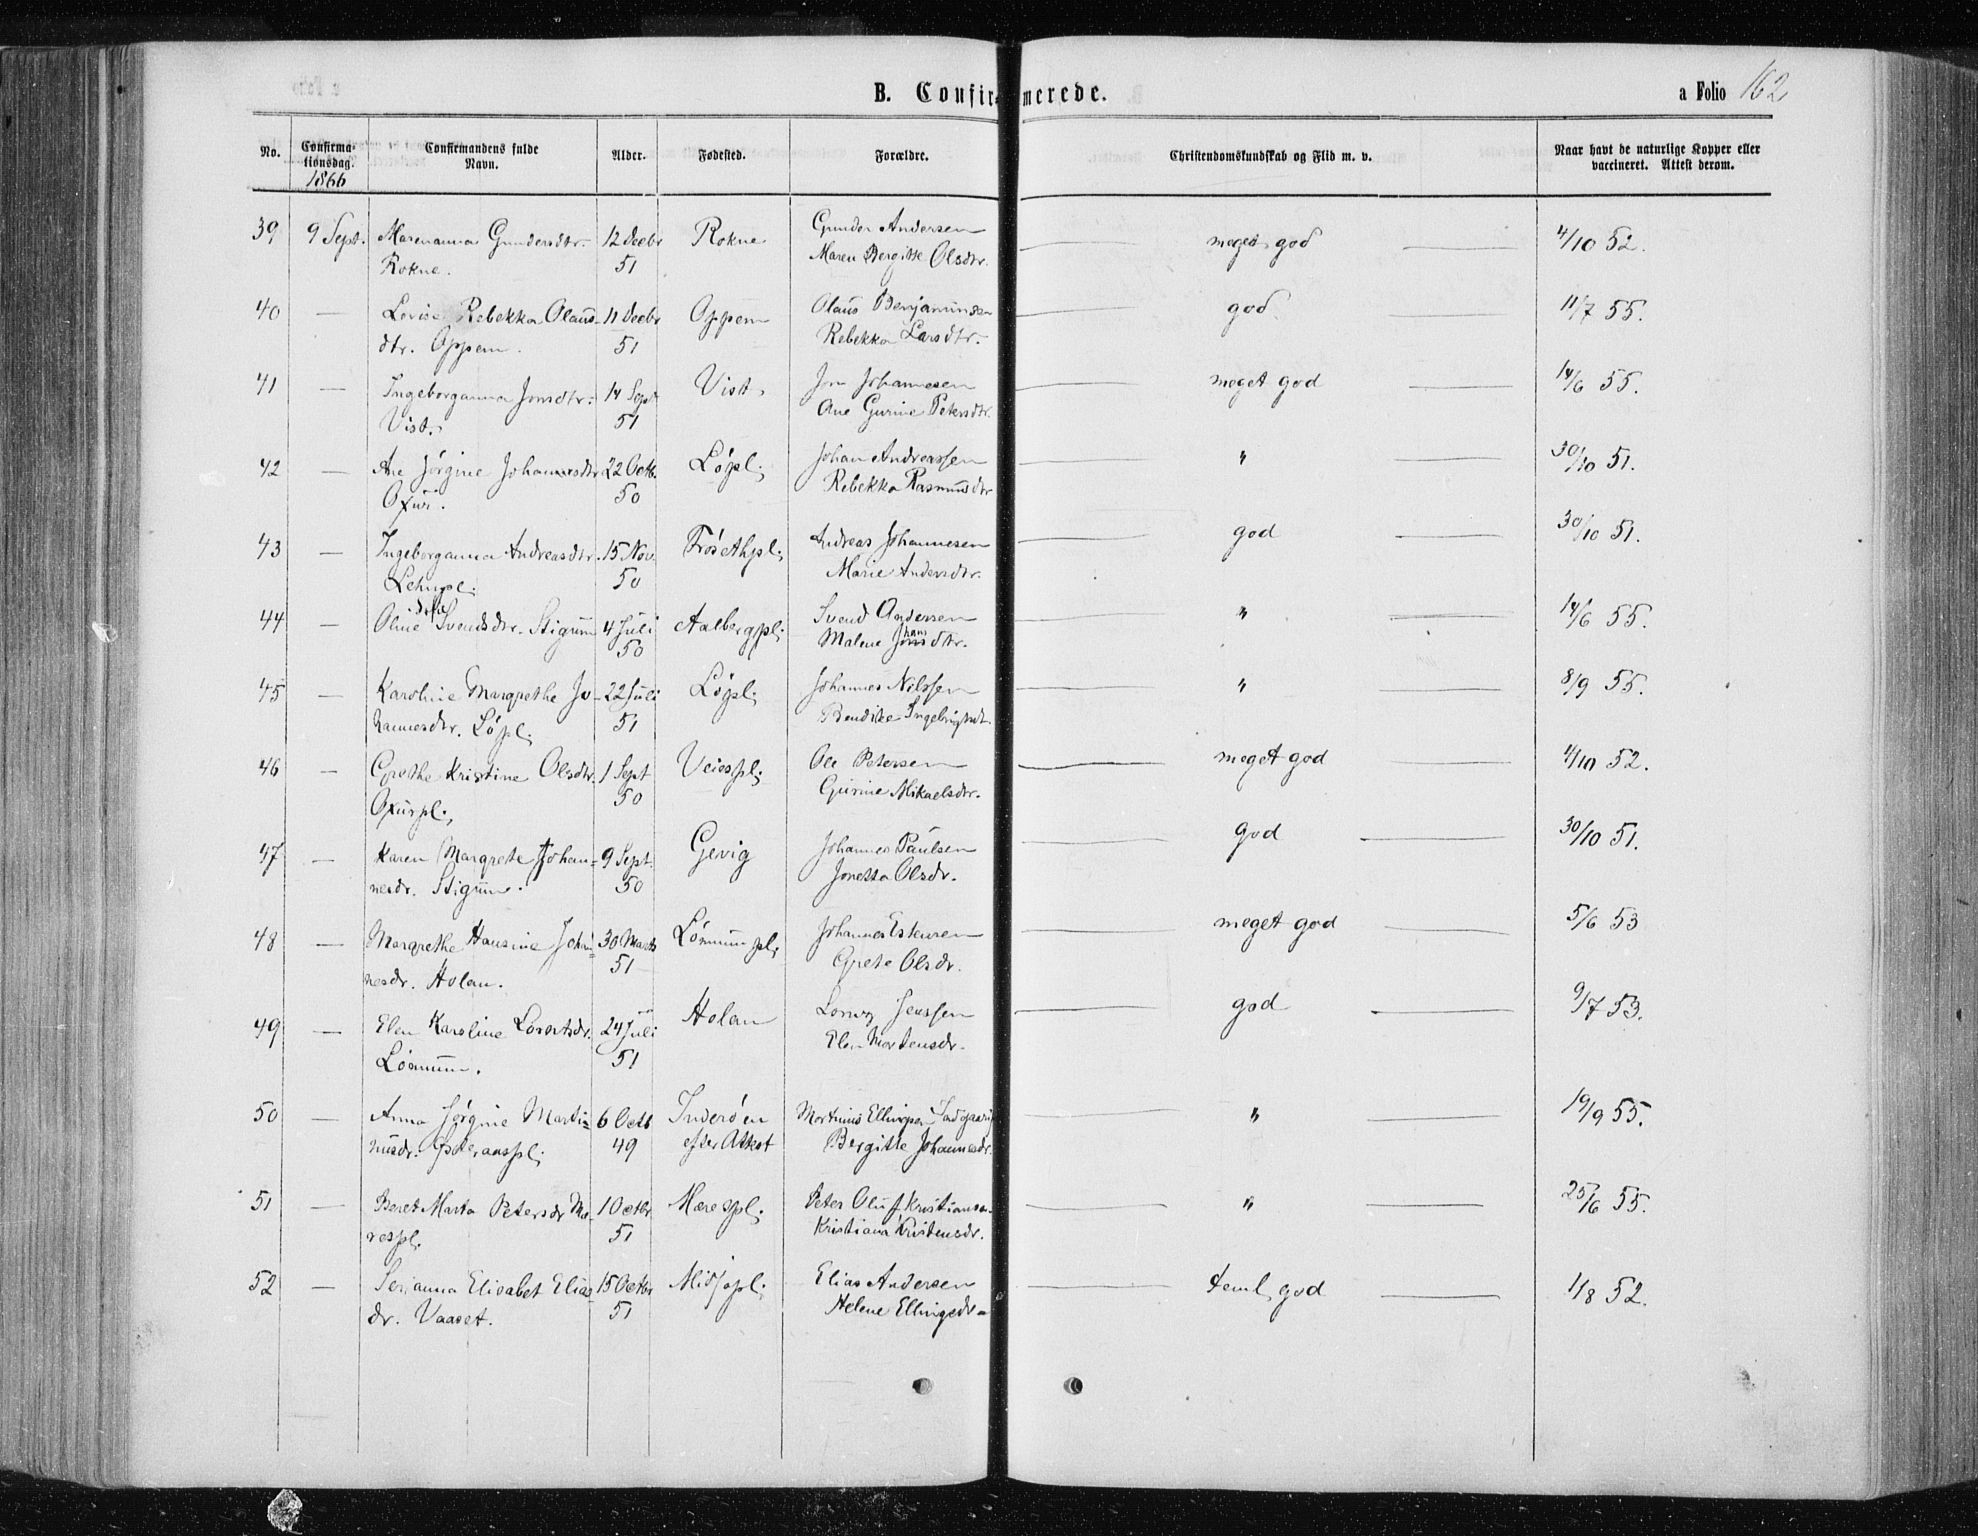 B. Confirmerede.
a Folio 162
No.
Confirma-
tionsdag.
1866
Confirmandens fulde
Navn.
Alder.
Fødested.
Forældre.
Christendomskundskab og Flid m. v.
Naar havt de naturlige Kopper eller
vaccineret. Attest derom.
39 9 Sept. Marenanna Gundersdtr. 12 Decbr Rokne Gunder Andersen meget god 4/10 52.
Rokne. 51 Maren Bergitte Olsdtr.
40 — Lovise Rebekka Olaus- 11 Decbr Oppem Olaus Benjaminsen god 11/7 55.
dtr. Oppem. 51 Rebekka Larsdtr.
41 — Ingeborganna Jonsdtr. 14 Sept Vist Jon Johannesen meget god 14/6 55.
Vist. 51 Ane Gurine Petersdtr.
42 — Ane Jørgine Johannesdtr 22 Octb. Løpl. Johan Andreassen " 30/10 51.
Oxur. 50 Rebekka Rasmusdtr
43 — Ingeborganna Andreasdtr. 15 Nov. Frøsethpl. Andreas Johannesen god 30/10 51.
50 Marie Andersdtr.
44 — Oline Svendsdtr. Stigum 4 Juli Aalbergpl. Svend Andersen " 14/6 55.
50 Malene dtr.
45 — Karoline Margrethe Jo- 22 Juli Løpl. Johannes Nilssen " 8/9 55.
hannesdtr. Løpl. 51
46 — Grethe Kristine Olsdtr. 1 Sept Veiespl. Ole Petersen meget god 4/10 52.
Oxurpl. 50 Gurine Mikaelsdtr.
47 — Karen Margrete Johan= 9 Sept. Gevig Johannes Paulsen god 30/10 51.
nesdr. Stigum. 50 Jonetta Olsdr.
48 — Margrethe Hansine Johan= 30 Marts Lønnumpl. Johannes meget god 5/6 53
nesdr. Holan. 51 Grete Olsdr.
49 — Elen Karoline 24 Juli Holan Jenssen god 9/7 53.
Lønnum. 51 Elen Mortensdr.
50 — Anna Jørgine Marti= 6 Octb Inderøen Martinus " 19/9 55.
nusdr. 49 efter Attest Bergitte Johannesdr.
51 — Beret Marta Petersdr Mæ- 1 Octbr Mærespl. Peter Oluf Kristiansen " 25/6 55.
respl. 51 Kristiana Kristensdr.
52 — Elisabet Elias 15 Octbr Elias Andersen teml. god 1/8 52.
dr. Vaaset. 51 Helene Ellingsdr